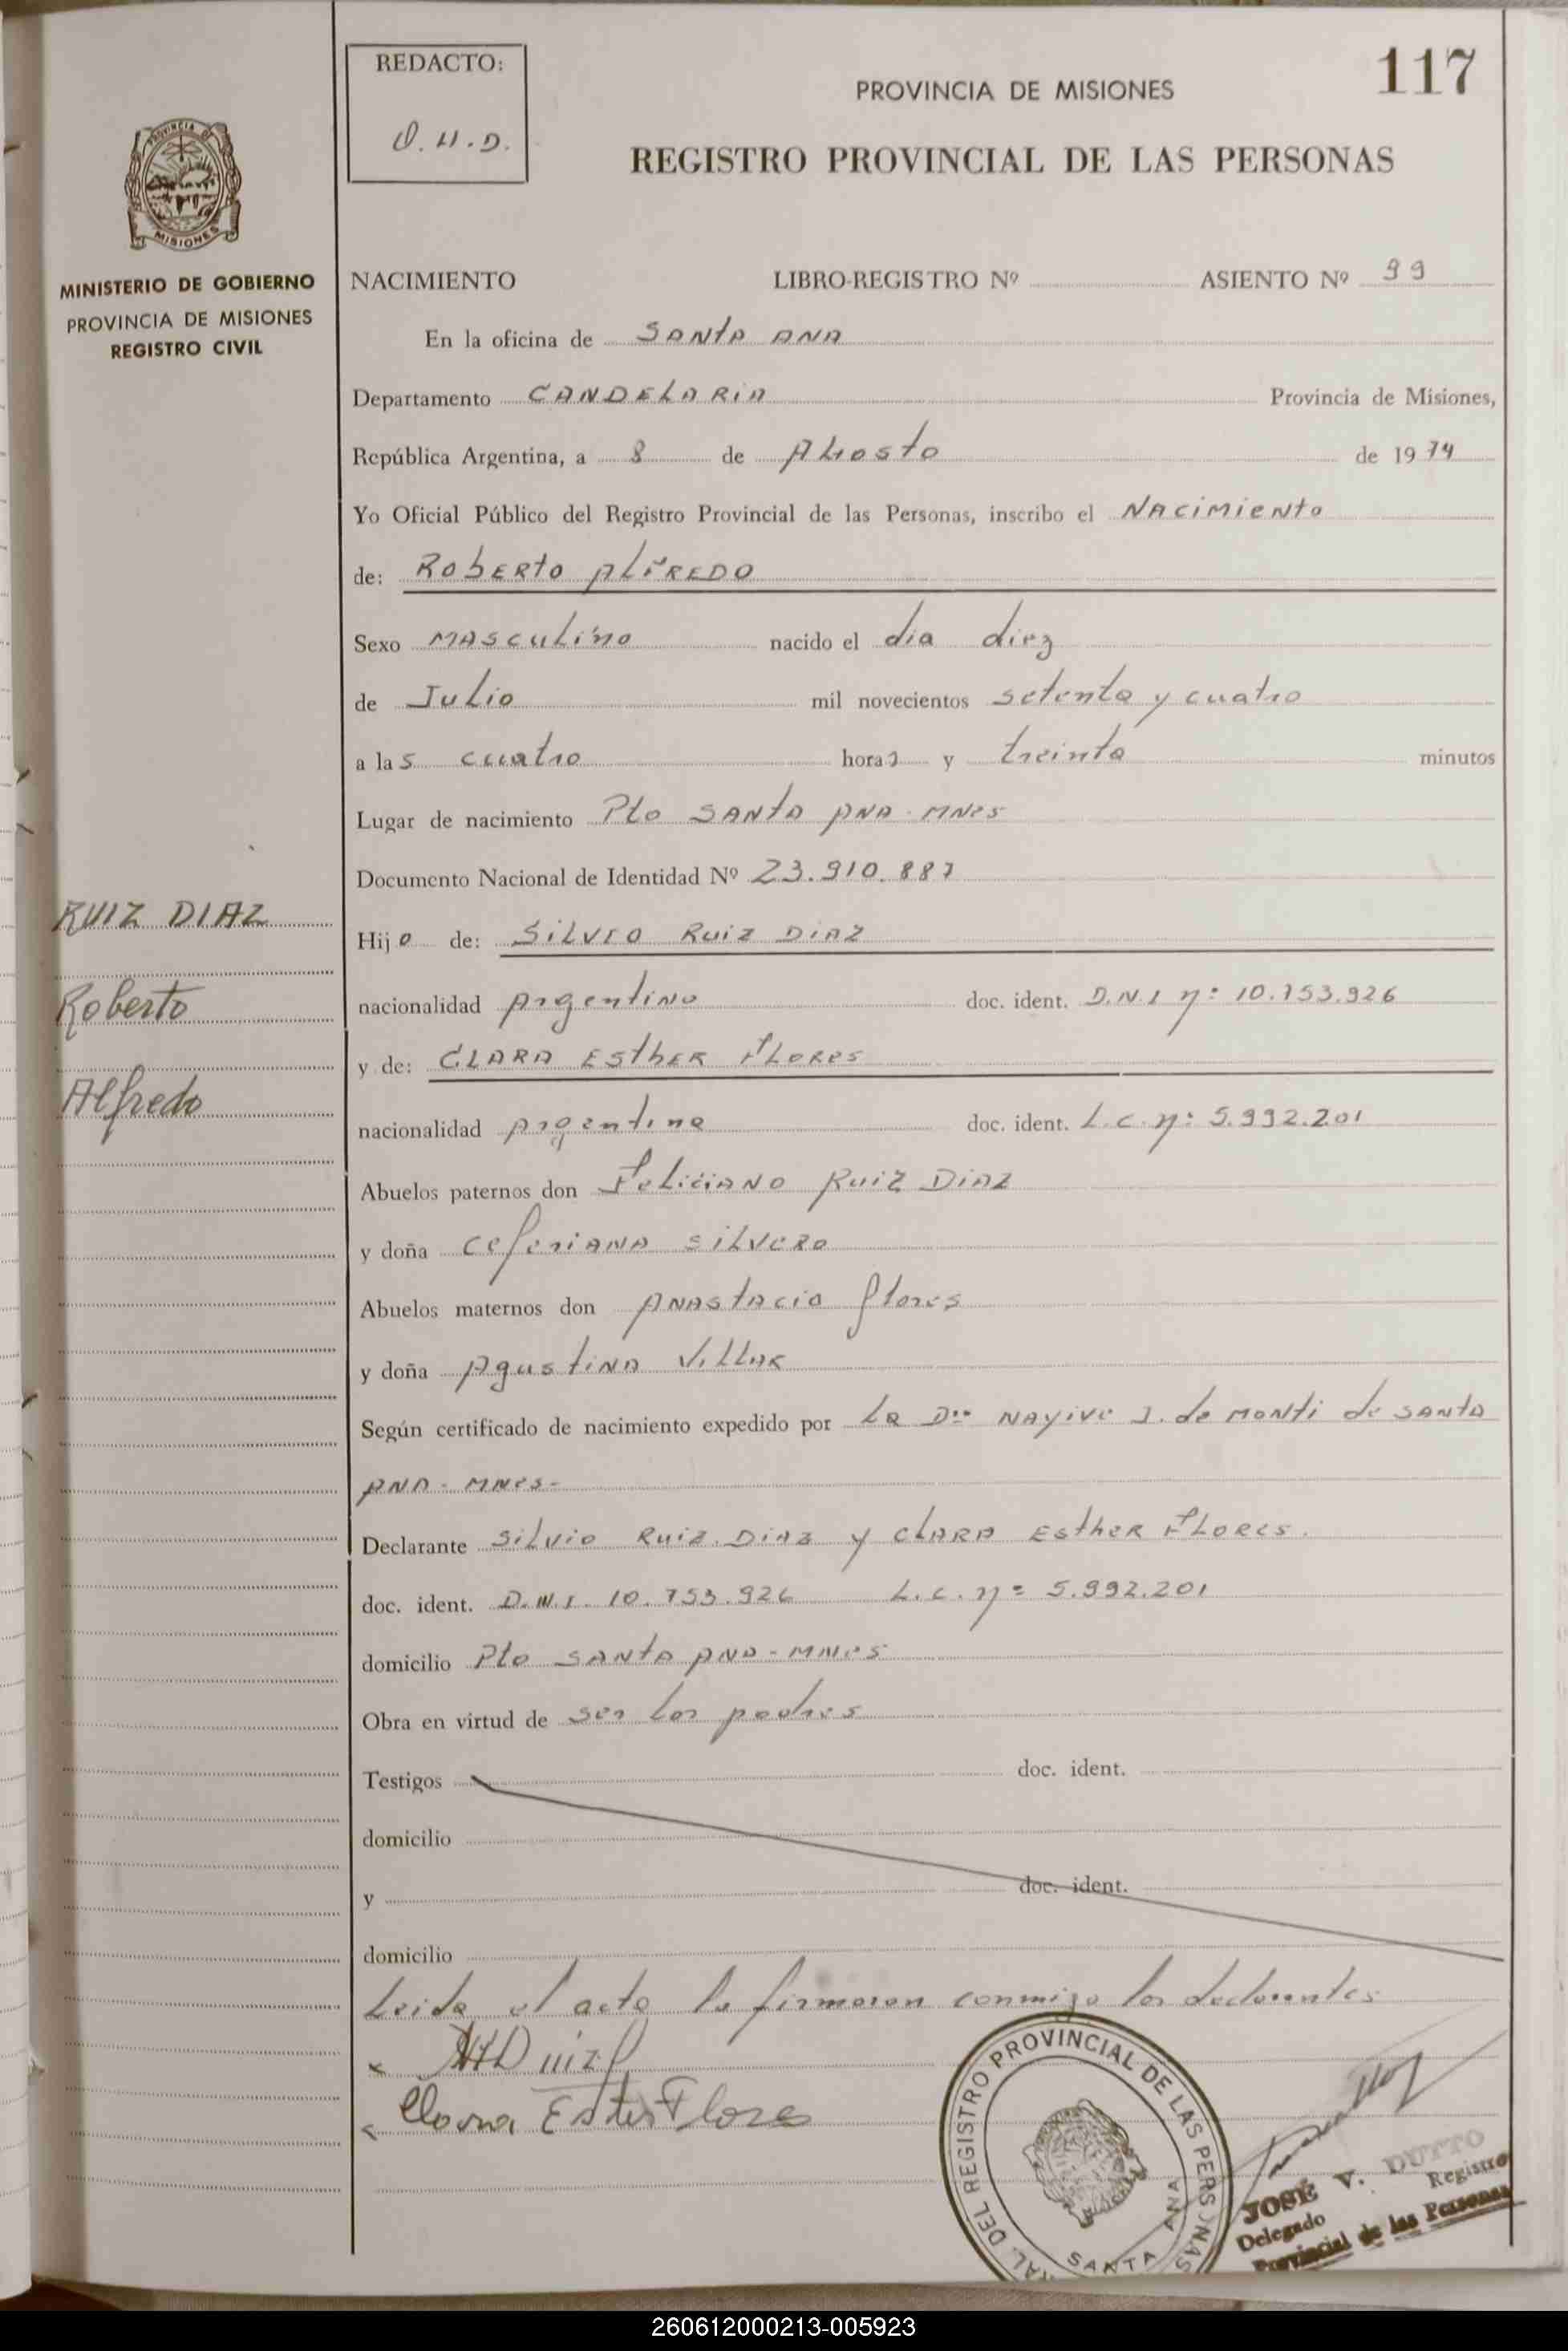 117
REDACTO:
O.H.D.
PROVINCIA DE MISIONES
REGISTRO PROVINCIAL DE LAS PERSONAS
PROVINCIA DE
MISIONES
MINISTERIO DE GOBIERNO
PROVINCIA DE MISIONES
REGISTRO CIVIL
NACIMIENTO LIBRO-REGISTRO Nº ASIENTO Nº 99
En la oficina de SANTA ANA
Departamento CANDELARIA Provincia de Misiones,
República Argentina, a 8 de AGosto de 1974
Yo Oficial Público del Registro Provincial de las Personas, inscribo el Nacimiento
de: Roberto Alfredo
Sexo Masculino nacido el dia diez
de Julio mil novecientos setenta y cuatro
a las cuatro horas y treinta minutos
Lugar de nacimiento Pto Santa Ana - Mnes
Documento Nacional de Identidad Nº 23.910.887
RUIZ DIAZ
Hijo de: Silvio Ruiz Diaz
Roberto
nacionalidad Argentino doc. ident. D.N.I nº 10.753.926
y de: Clara Esther Flores
Alfredo
nacionalidad Argentina doc. ident. L.C. nº 5.992.201
Abuelos paternos don Feliciano Ruiz Diaz
y doña Ceferiana Silvero
Abuelos maternos don Anastacio flores
y doña Agustina Villar
Según certificado de nacimiento expedido por La Dra Nayive J. de Monti de Santa
Ana - Mnes-
Declarante Silvio Ruiz Diaz y Clara Esther Flores.
doc. ident. D.N.I. 10.753.926 L.C. nº 5.992.201
domicilio Pto Santa Ana - Mnes
Obra en virtud de ser los padres
Testigos doc. ident.
domicilio
y doc. ident.
domicilio
Leida el acta la firmaron conmigo los declarantes
Clara Ester Flores
DEL REGISTRO PROVINCIAL DE LAS PERSONAS
SANTA ANA
JOSÉ V. DUTTO
Delegado Registro
Provincial de las Personas
260612000213-005923